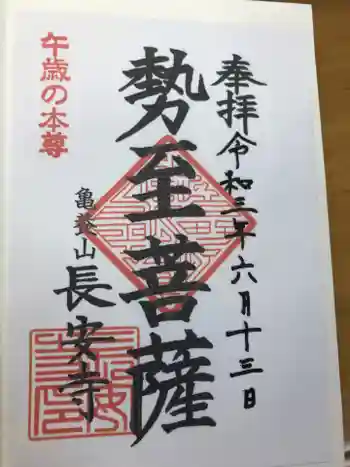 奉拝令和三年六月十三日
勢至菩薩
亀養山
長安寺
午歳の本尊